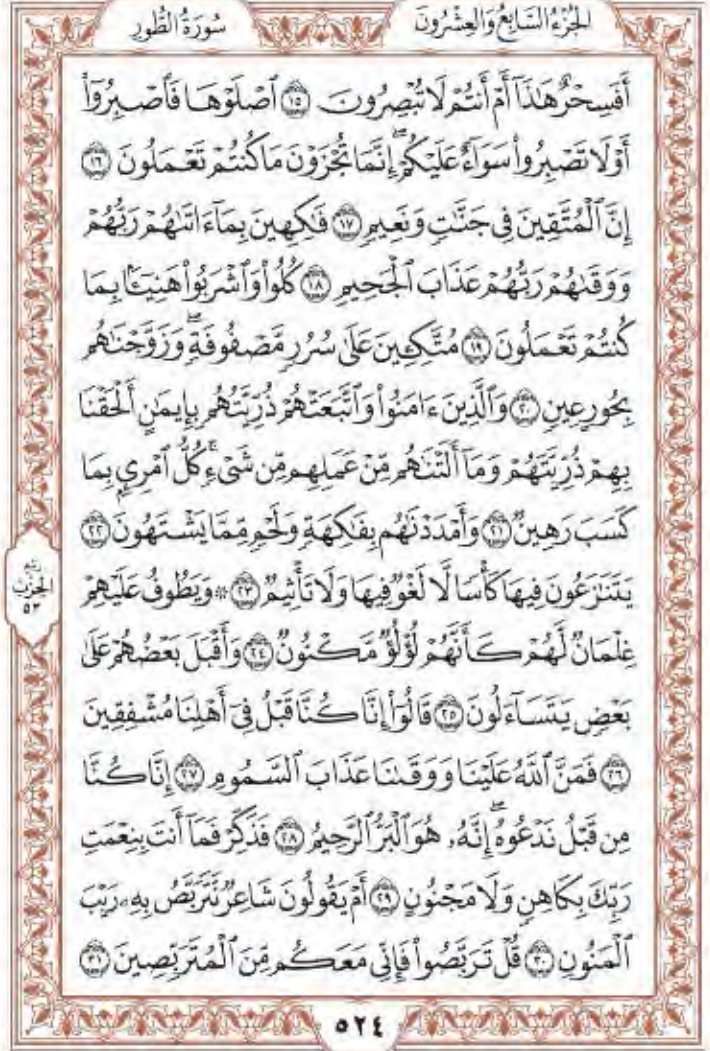 الجُزْءُ السَّابِعُ وَالعِشْرُونَ
سُورَةُ الطُّورِ
أَفَسِحْرٌ هَٰذَآ أَمْ أَنتُمْ لَا تُبْصِرُونَ ١٥ ٱصْلَوْهَا فَٱصْبِرُوٓا۟
أَوْ لَا تَصْبِرُوا۟ سَوَآءٌ عَلَيْكُمْ ۖ إِنَّمَا تُجْزَوْنَ مَا كُنتُمْ تَعْمَلُونَ ١٦
إِنَّ ٱلْمُتَّقِينَ فِى جَنَّٰتٍ وَنَعِيمٍ ١٧ فَٰكِهِينَ بِمَآ ءَاتَىٰهُمْ رَبُّهُمْ
وَوَقَىٰهُمْ رَبُّهُمْ عَذَابَ ٱلْجَحِيمِ ١٨ كُلُوا۟ وَٱشْرَبُوا۟ هَنِيٓـًٔۢا بِمَا
كُنتُمْ تَعْمَلُونَ ١٩ مُتَّكِـِٔينَ عَلَىٰ سُرُرٍ مَّصْفُوفَةٍ ۖ وَزَوَّجْنَٰهُم
بِحُورٍ عِينٍ ٢٠ وَٱلَّذِينَ ءَامَنُوا۟ وَٱتَّبَعَتْهُمْ ذُرِّيَّتُهُم بِإِيمَٰنٍ أَلْحَقْنَا
بِهِمْ ذُرِّيَّتَهُمْ وَمَآ أَلَتْنَٰهُم مِّنْ عَمَلِهِم مِّن شَىْءٍ ۚ كُلُّ ٱمْرِئٍۭ بِمَا
كَسَبَ رَهِينٌ ٢١ وَأَمْدَدْنَٰهُم بِفَٰكِهَةٍ وَلَحْمٍ مِّمَّا يَشْتَهُونَ ٢٢
يَتَنَٰزَعُونَ فِيهَا كَأْسًا لَّا لَغْوٌ فِيهَا وَلَا تَأْثِيمٌ ٢٣ ۞ وَيَطُوفُ عَلَيْهِمْ
غِلْمَانٌ لَّهُمْ كَأَنَّهُمْ لُؤْلُؤٌ مَّكْنُونٌ ٢٤ وَأَقْبَلَ بَعْضُهُمْ عَلَىٰ
بَعْضٍ يَتَسَآءَلُونَ ٢٥ قَالُوٓا۟ إِنَّا كُنَّا قَبْلُ فِىٓ أَهْلِنَا مُشْفِقِينَ
٢٦ فَمَنَّ ٱللَّهُ عَلَيْنَا وَوَقَىٰنَا عَذَابَ ٱلسَّمُومِ ٢٧ إِنَّا كُنَّا
مِن قَبْلُ نَدْعُوهُ ۖ إِنَّهُۥ هُوَ ٱلْبَرُّ ٱلرَّحِيمُ ٢٨ فَذَكِّرْ فَمَآ أَنتَ بِنِعْمَتِ
رَبِّكَ بِكَاهِنٍ وَلَا مَجْنُونٍ ٢٩ أَمْ يَقُولُونَ شَاعِرٌ نَّتَرَبَّصُ بِهِۦ رَيْبَ
ٱلْمَنُونِ ٣٠ قُلْ تَرَبَّصُوا۟ فَإِنِّى مَعَكُم مِّنَ ٱلْمُتَرَبِّصِينَ ٣١
ربع
الحِزْب
٥٣
٥٢٤